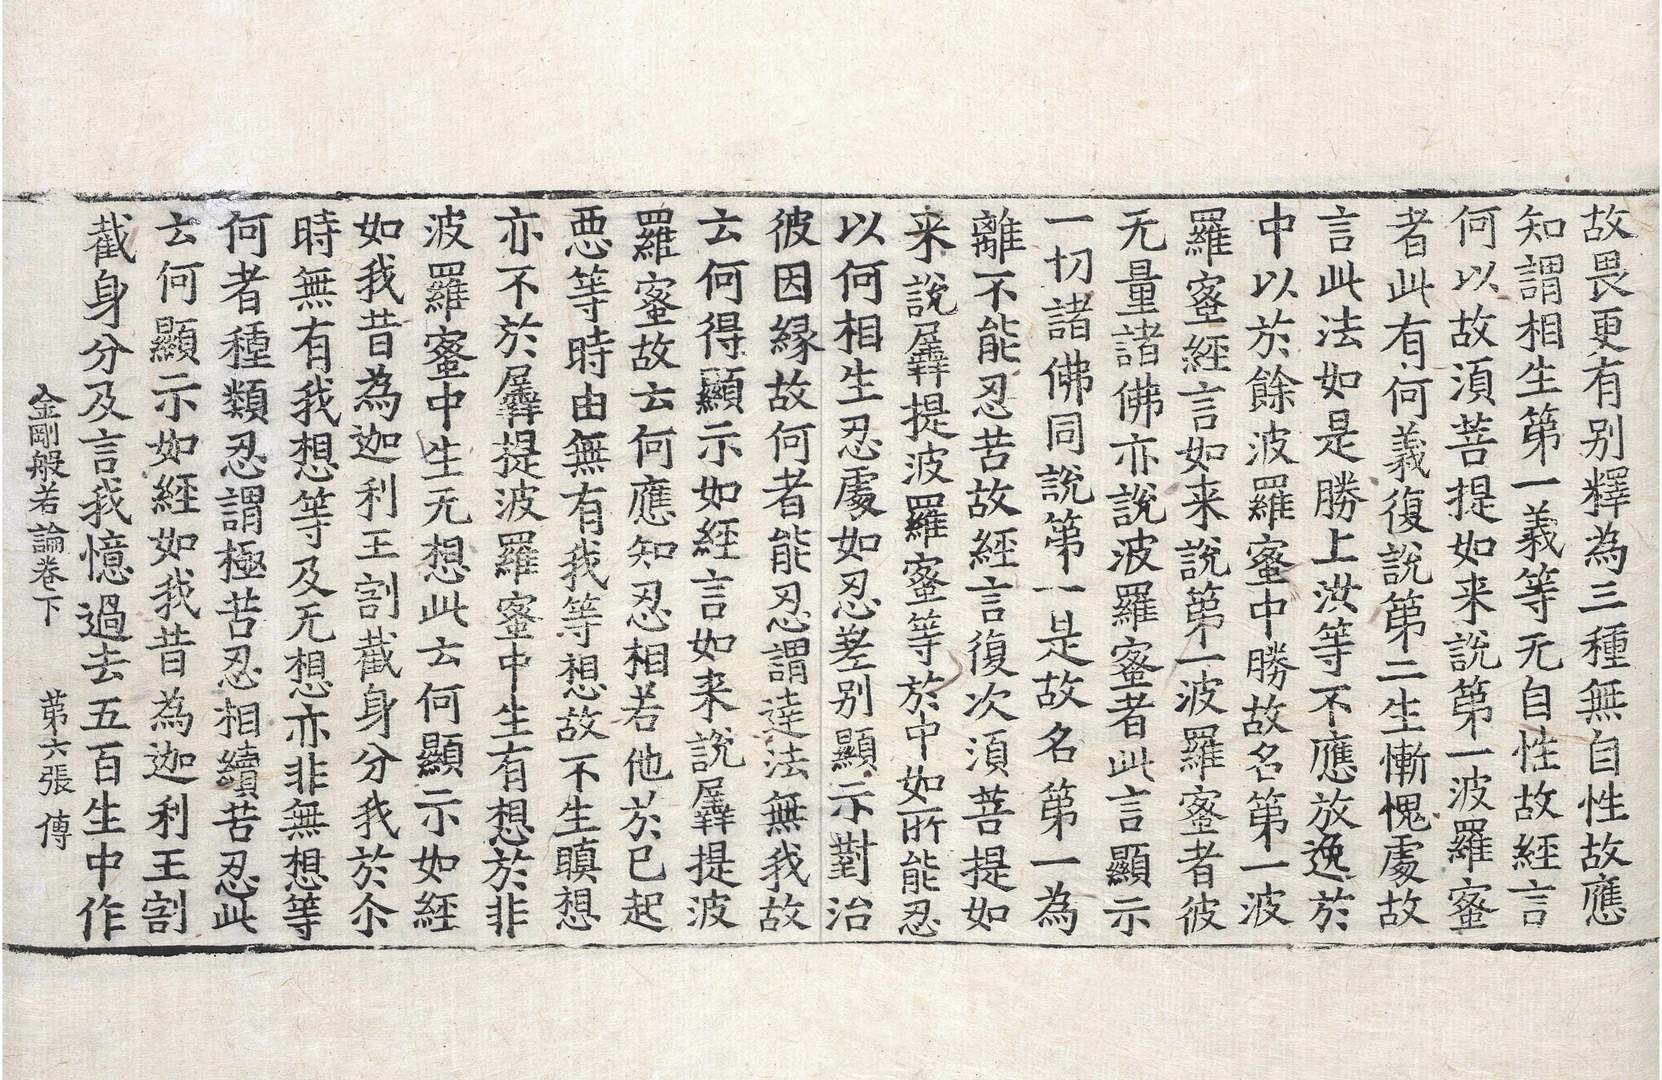 故畏更有别釋為三種無自性故應
知謂相生第一義等无自性故經言
何以故湏菩提如来說第一波羅蜜
者此有何義復說第二生慚愧處故
言此法如是勝上汝等不應放逸於
中以於餘波羅蜜中勝故名第一波
羅蜜經言如来說第一波羅蜜者彼
无量諸佛亦說波羅蜜者此言顯示
一切諸佛同說第一是故名第一為
離不能忍苦故經言復次湏菩提如
来說羼提波羅蜜等於中如所能忍
以何相生忍處如忍差别顯示對治
彼因緣故何者能忍謂達法無我故
云何得顯示如經言如来說羼提波
羅蜜故云何應知忍相若他於己起
惡等時由無有我等想故不生瞋想
亦不於羼提波羅蜜中生有想於非
波羅蜜中生无想此云何顯示如經
如我昔為迦利王割截身分我於尒
時無有我想等及无想亦非無想等
何者種類忍謂極苦忍相續苦忍此
云何顯示如經如我昔為迦利王割
截身分及言我憶過去五百生中作
金剛般若論卷下 苐六張 傳